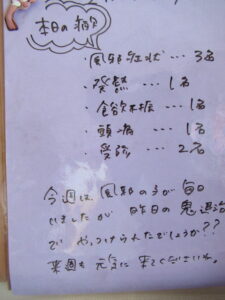 本日の病欠
・風邪症状…3名
・発熱…1名
・食欲不振…1名
・頭痛…1名
・受診…2名
今週は、風邪の子が毎日
いましたが 昨日の鬼退治
で やっつけられたでしょうか??
来週も 元気に 来てくださいね。